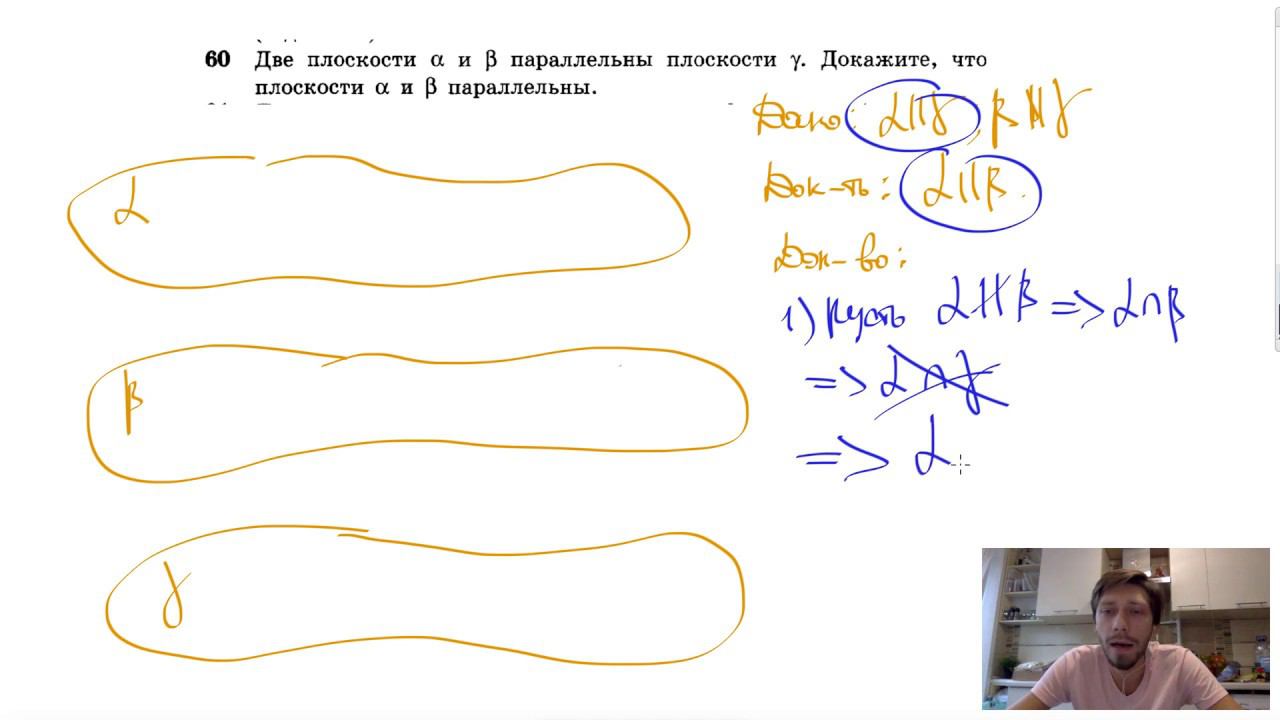 60 Две плоскости α и β параллельны плоскости γ. Докажите, что
плоскости α и β параллельны.
Дано: α||γ, β||γ
Док-ть: α||β.
Док-во:
1) Пусть α∦β => α∩β
=> α∩γ
=> α
α
β
γ